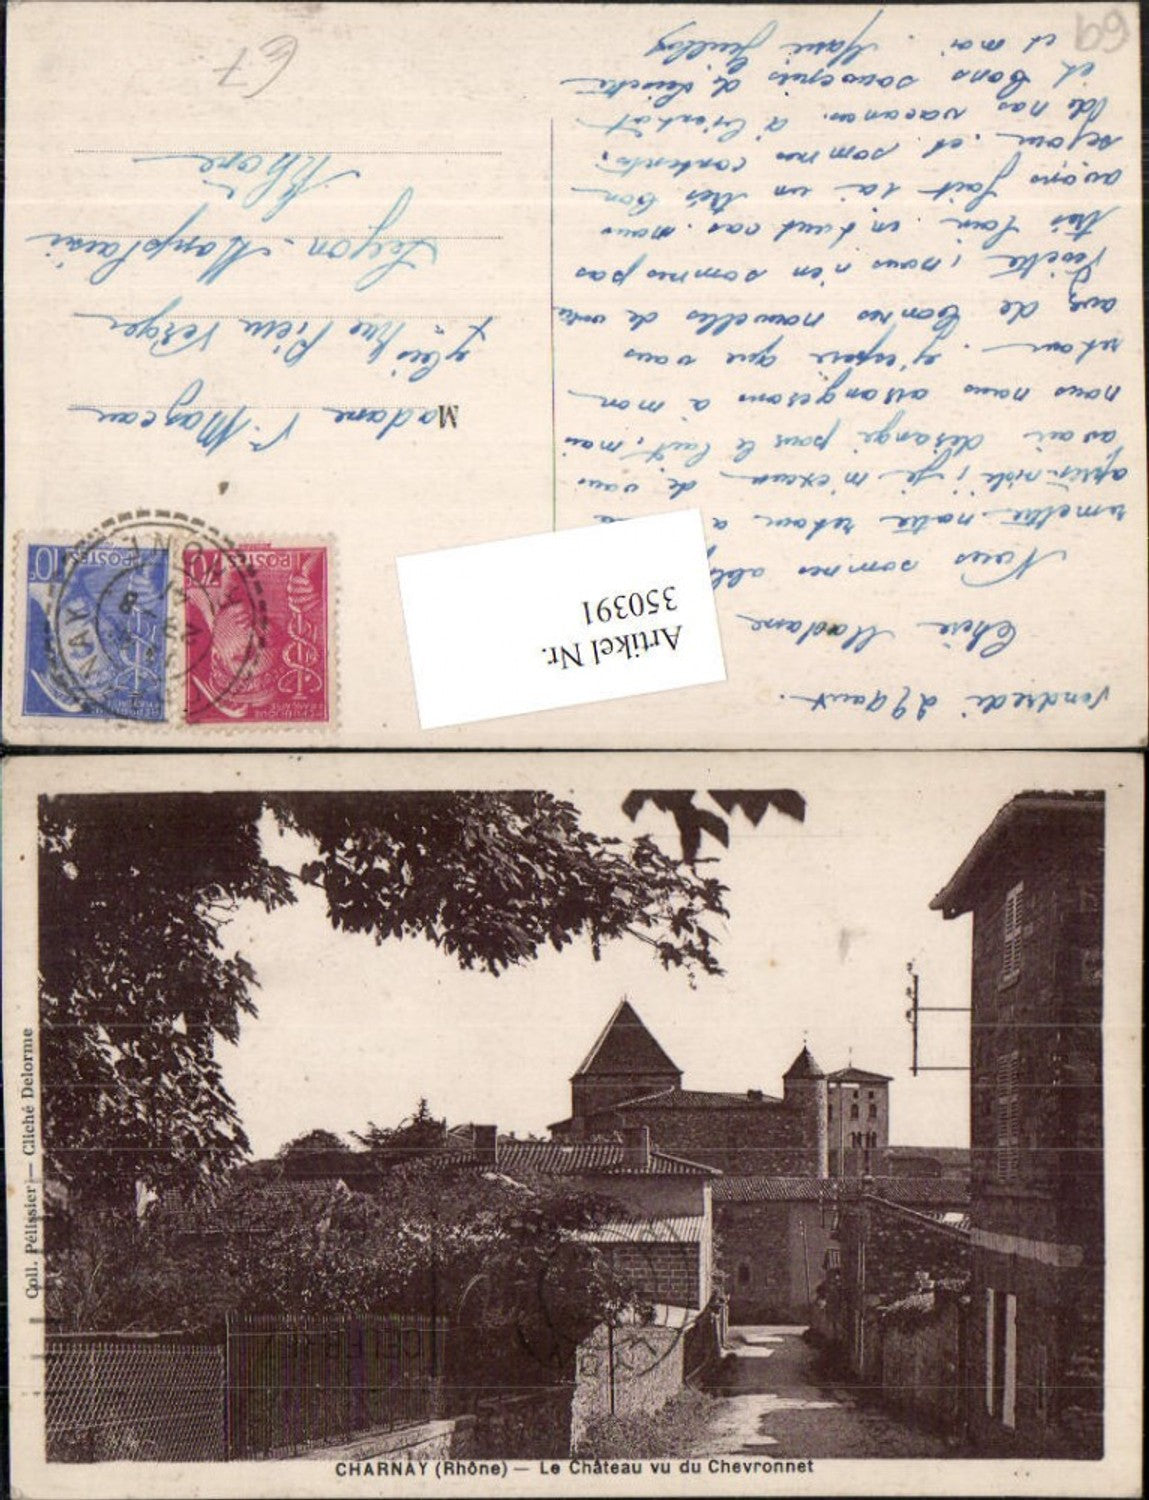 69
67
Vendredi 29 Aout.
Chère Madame
Nous sommes
remettre notre retour a
après-midi; je m'excuse de vous
avoir dérangé pour le lait, mais
nous nous arrangerons à mon
retour. J'espère que vous
avez de bonnes nouvelles de votre
Rosette, nous n'en sommes pas
très loin. en tout cas. nous
avons fait ici un très bon
séjour et sommes contents,
de nos vacances. à bientôt
et bons souvenirs de
et moi. Marie
Madame Vve Mazeau
Rue Pierre Verger
Lyon Monplaisir
Rhône
CHARNAY
RHONE
POSTES
10c
POSTES
70c
REPUBLIQUE FRANCAISE
Artikel Nr.
350391
Coll. Pélissier — Cliché Delorme
CHARNAY (Rhône) — Le Château vu du Chevronnet